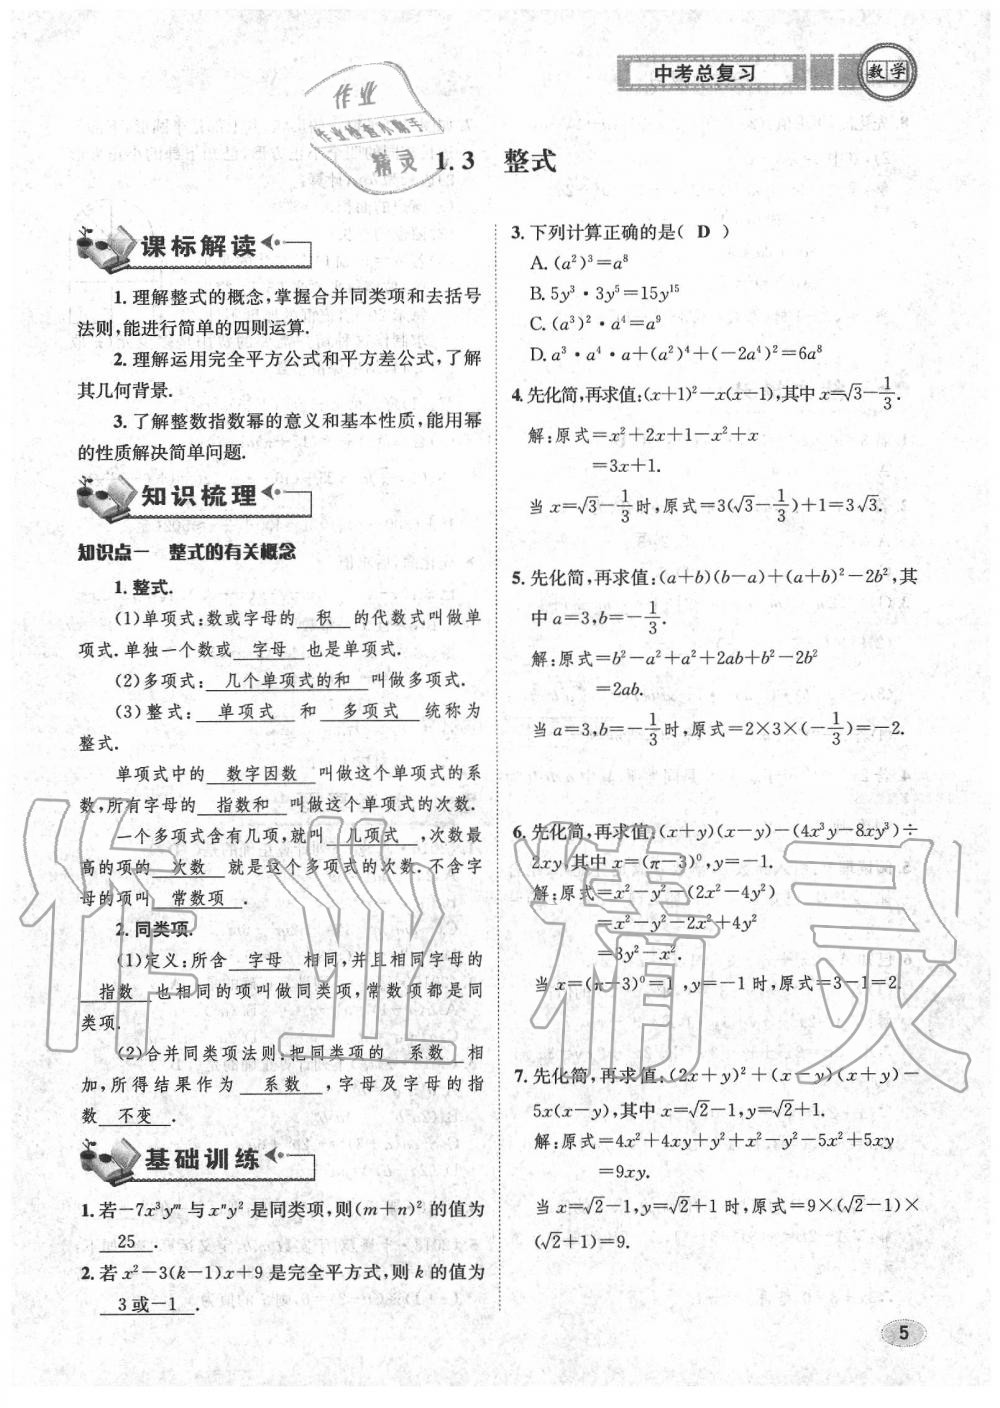 中考总复习
数学
作业
作业检查小助手
精灵
1.3 整式
课标解读
1. 理解整式的概念,掌握合并同类项和去括号
法则,能进行简单的四则运算.
2. 理解运用完全平方公式和平方差公式,了解
其几何背景.
3. 了解整数指数幂的意义和基本性质,能用幂
的性质解决简单问题.
知识梳理
知识点一 整式的有关概念
1. 整式.
(1)单项式:数或字母的 积 的代数式叫做单
项式.单独一个数或 字母 也是单项式.
(2)多项式: 几个单项式的和 叫做多项式.
(3)整式: 单项式 和 多项式 统称为
整式.
单项式中的 数字因数 叫做这个单项式的系
数,所有字母的 指数和 叫做这个单项式的次数.
一个多项式含有几项,就叫 几项式 ,次数最
高的项的 次数 就是这个多项式的次数.不含字
母的项叫 常数项 .
2. 同类项.
(1)定义:所含 字母 相同,并且相同字母的
指数 也相同的项叫做同类项,常数项都是同
类项.
(2)合并同类项法则:把同类项的 系数 相
加,所得结果作为 系数 ,字母及字母的指
数 不变 .
基础训练
1. 若-7x³yᵐ与xⁿy²是同类项,则(m+n)²的值为
25 .
2. 若x²-3(k-1)x+9是完全平方式,则k的值为
3或-1 .
3. 下列计算正确的是( D )
A. (a²)³=a⁸
B. 5y³·3y⁵=15y¹⁵
C. (a³)²·a⁴=a⁹
D. a³·a⁴·a+(a²)⁴+(-2a⁴)²=6a⁸
4. 先化简,再求值:(x+1)²-x(x-1),其中x=√3-1/3.
解:原式=x²+2x+1-x²+x
=3x+1.
当x=√3-1/3时,原式=3(√3-1/3)+1=3√3.
5. 先化简,再求值:(a+b)(b-a)+(a+b)²-2b²,其
中a=3,b=-1/3.
解:原式=b²-a²+a²+2ab+b²-2b²
=2ab.
当a=3,b=-1/3时,原式=2×3×(-1/3)=-2.
6. 先化简,再求值:(x+y)(x-y)-(4x³y-8xy³)÷
2xy,其中x=(π-3)⁰,y=-1.
解:原式=x²-y²-(2x²-4y²)
=x²-y²-2x²+4y²
=3y²-x².
当x=(π-3)⁰=1,y=-1时,原式=3-1=2.
7. 先化简,再求值:(2x+y)²+(x-y)(x+y)-
5x(x-y),其中x=√2-1,y=√2+1.
解:原式=4x²+4xy+y²+x²-y²-5x²+5xy
=9xy.
当x=√2-1,y=√2+1时,原式=9×(√2-1)×
(√2+1)=9.
作业精灵
5